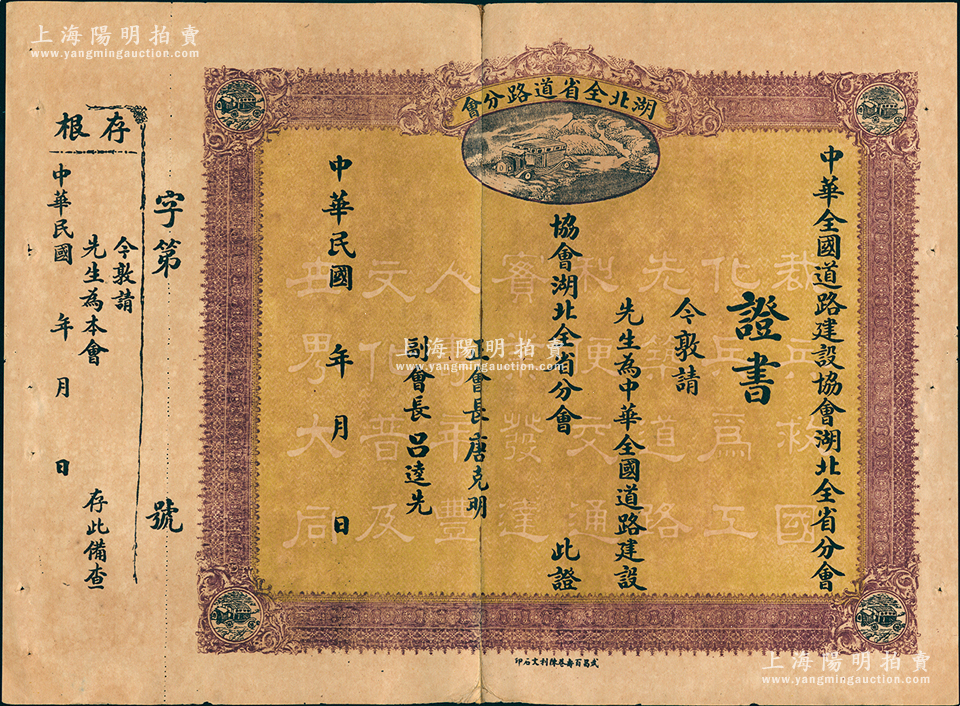 上海陽明拍賣
www.yangmingauction.com
湖北全省道路分會
中華全國道路建設協會湖北全省分會
證書
今敦請
先生為中華全國道路建設
協會湖北全省分會
此證
正會長唐克明
副會長呂逵先
中華民國 年 月 日
裁兵救國
化兵為工
先築道路
利便交通
實業發達
人 年豐
文化普及
世界大同
字第 號
存根
今敦請
先生為本會
存此備查
中華民國 年 月 日
武昌百壽巷陳利文石印
上海陽明拍賣
www.yangmingauction.com
上海陽明拍賣
www.yangmingauction.com